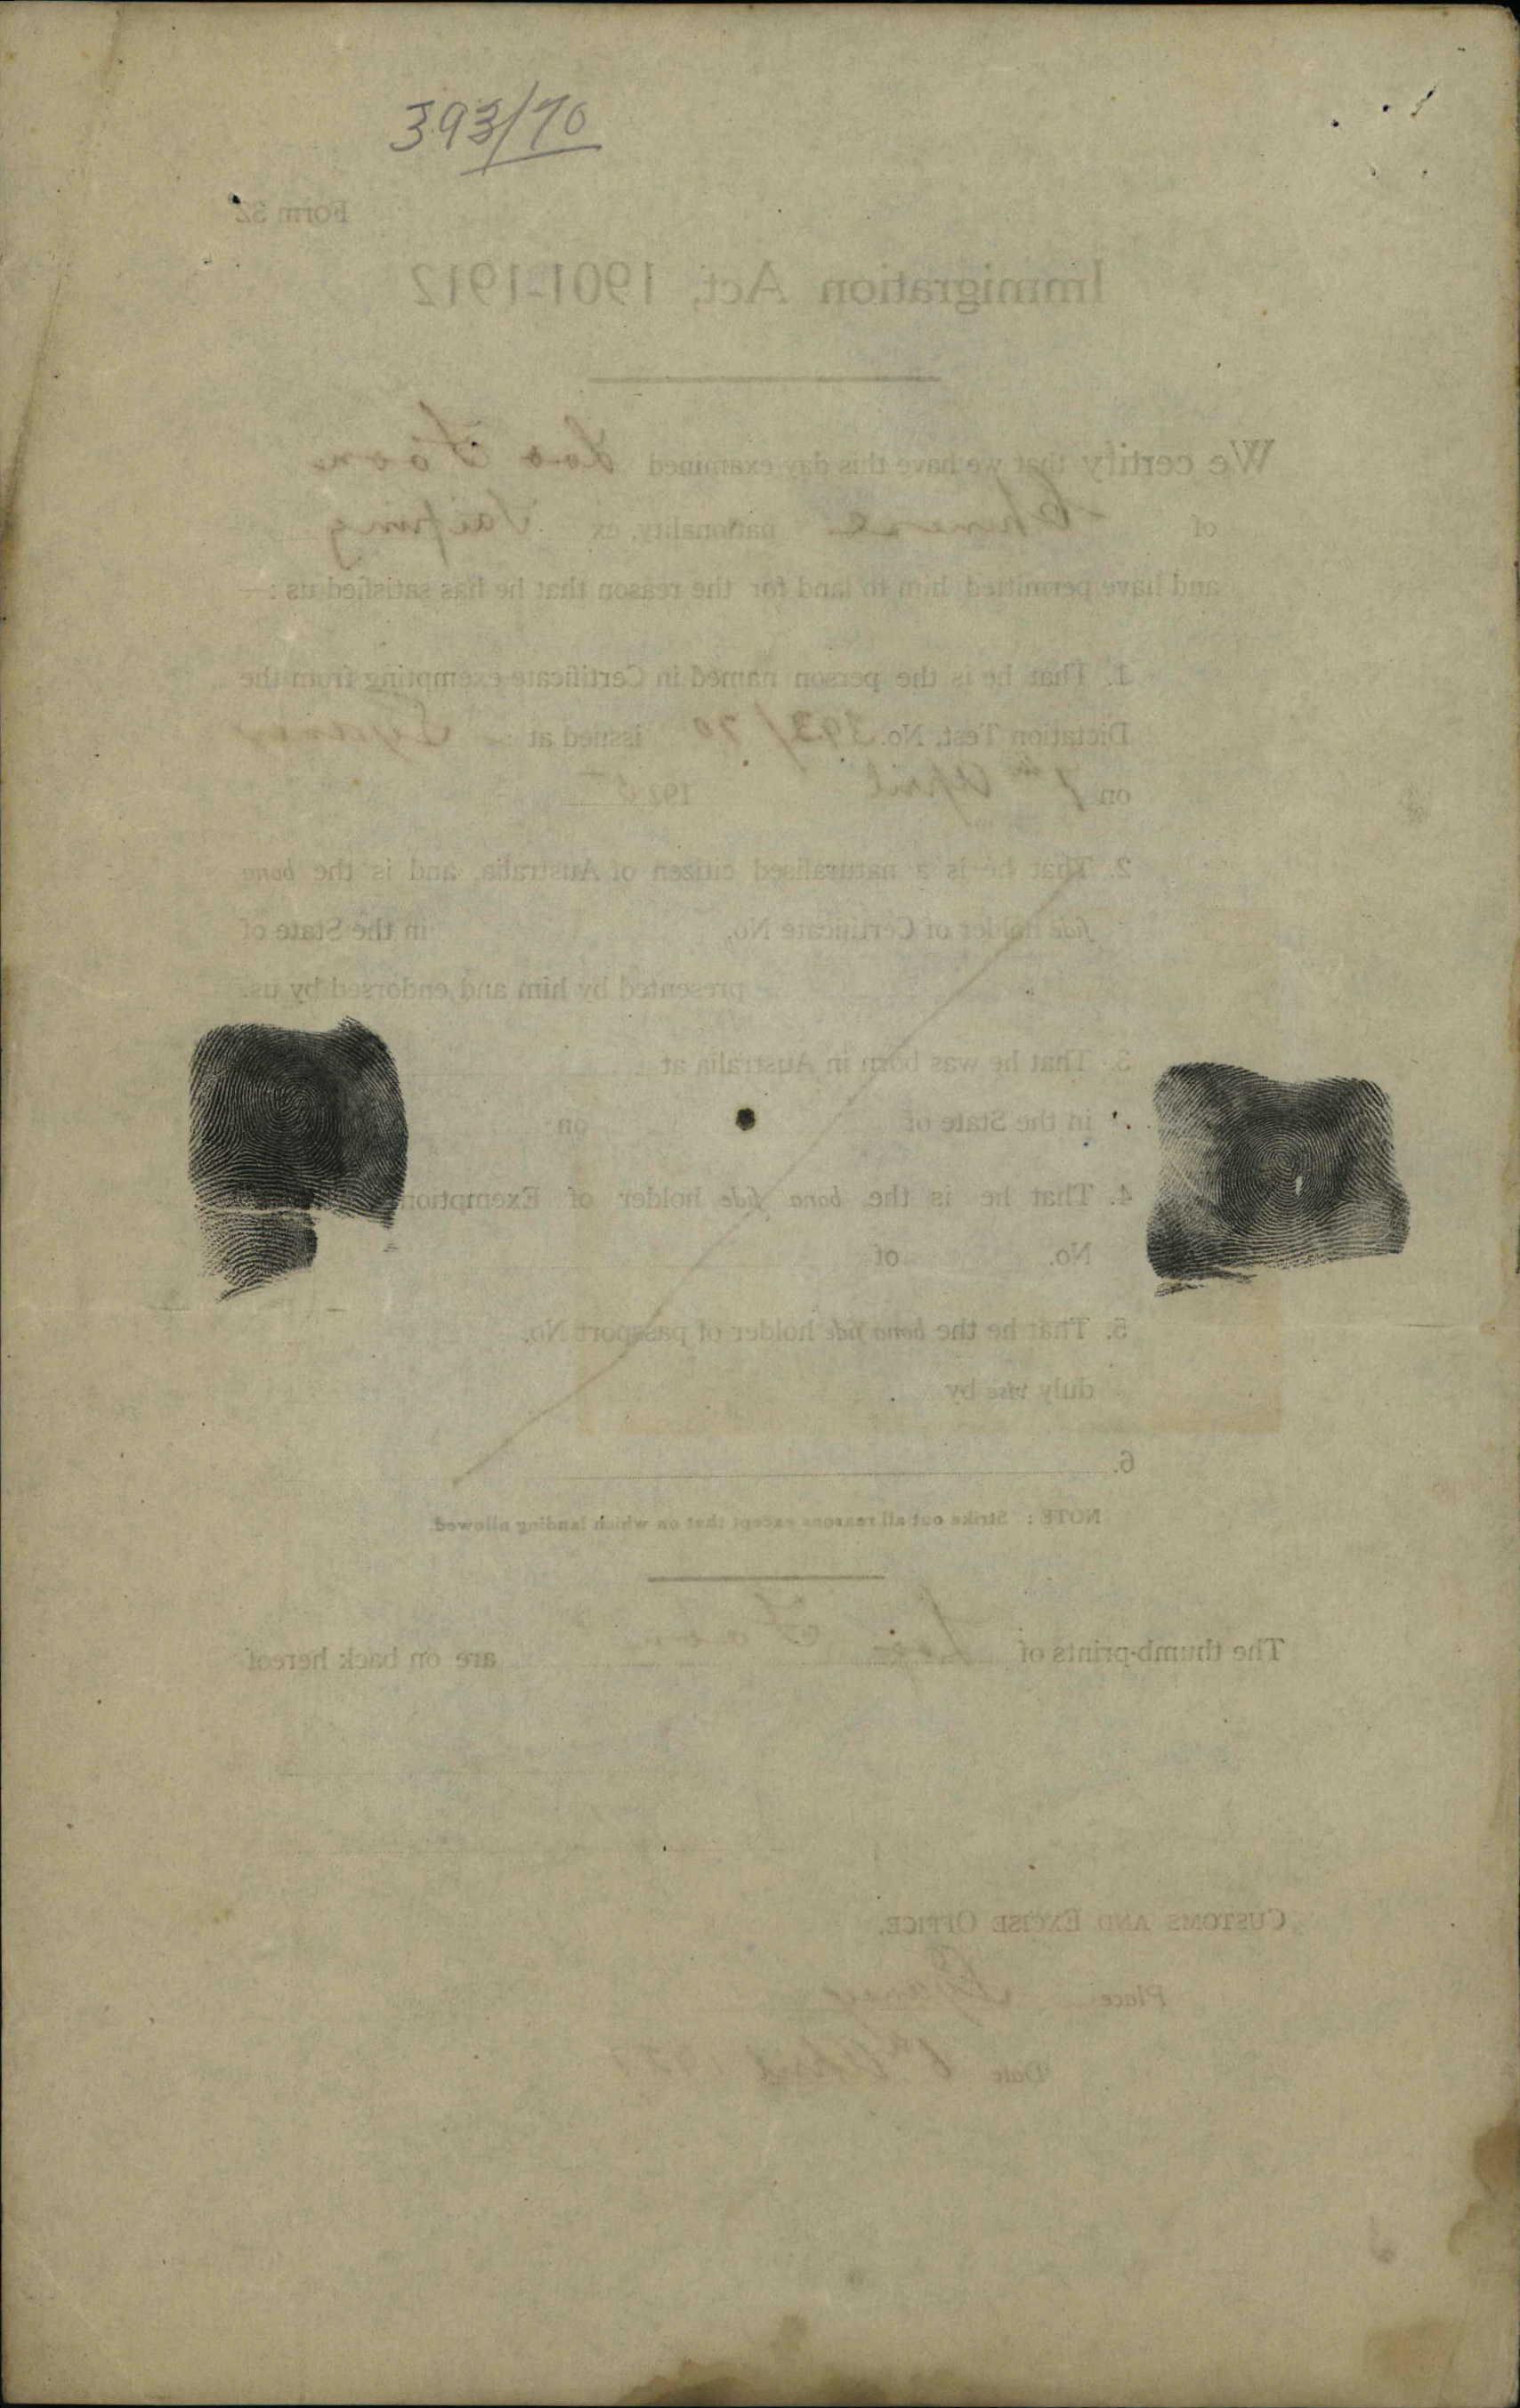 393/70
Form 32
Immigration Act, 1901-1912
We certify that we have this day examined Loo Foon
of Chinese nationality, ex Taiping
and have permitted him to land for the reason that he has satisfied us :—
1. That he is the person named in Certificate exempting from the
Dictation Test, No. 393/70 issued at Sydney
on 7th April 1925
2. That he is a naturalised citizen of Australia, and is the bona
fide holder of Certificate No. in the State of
presented by him and endorsed by us.
3. That he was born in Australia at
in the State of on
4. That he is the bona fide holder of Exemption
No. of
5. That he the bona fide holder of passport No.
duly vise by
6.
NOTE : Strike out all reasons except that on which landing allowed
The thumb-prints of Loo Foon are on back hereof
CUSTOMS AND EXCISE OFFICE,
Place Sydney
Date April